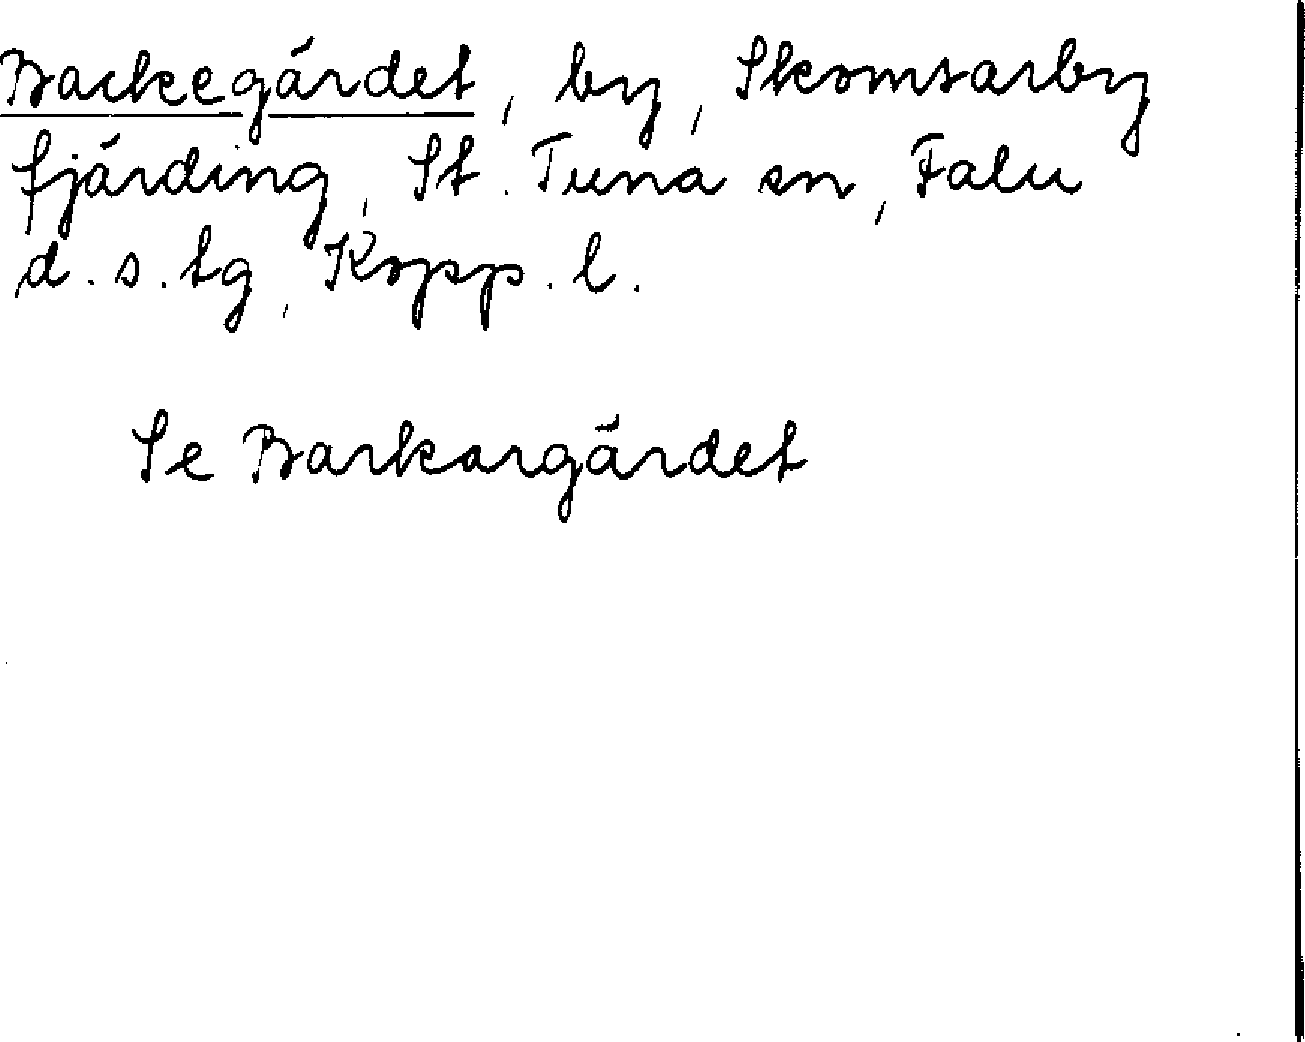 Backegärdet, by, Skomsarby
fjärding, St. Tuna sn, Falu
d.s.lg, Kopp.l.
Se Barkargärdet